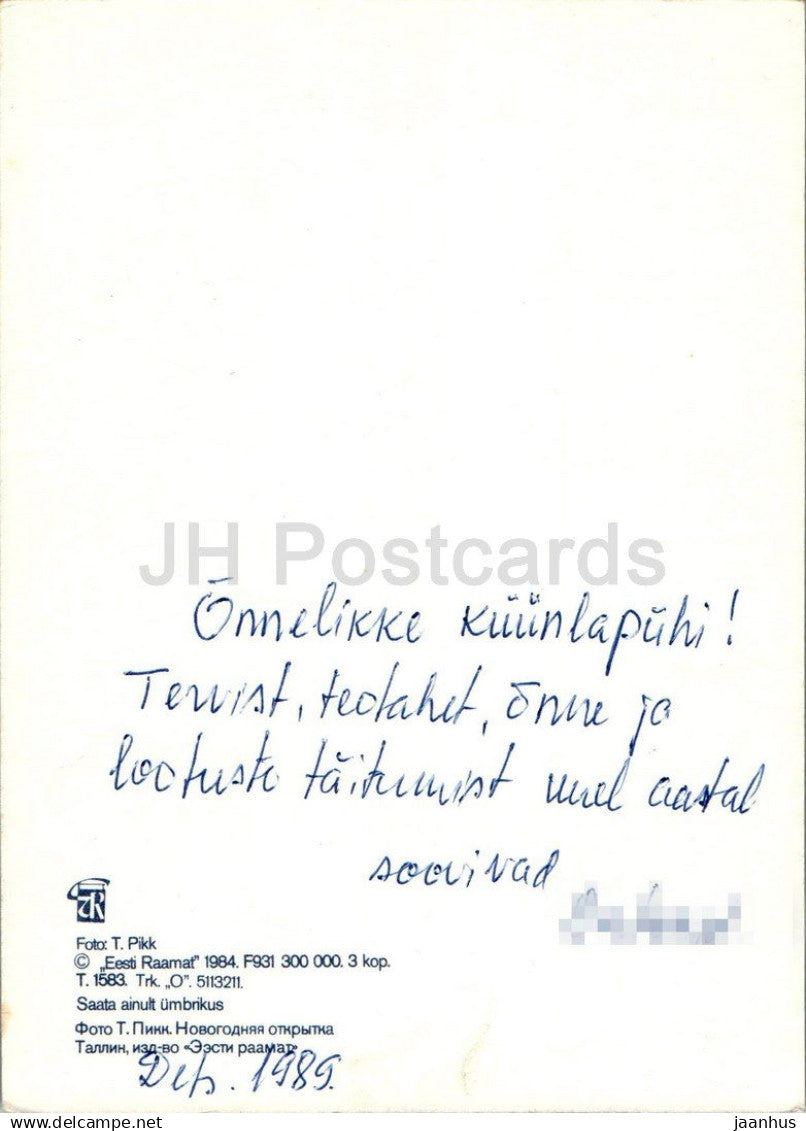 JH Postcards
Õnnelikke küünlapühi!
Tervist, teotahet, õnne ja
lootuste täitumist uuel aastal
soovivad
Foto: T. Pikk
© „Eesti Raamat" 1984. F931 300 000. 3 kop.
T. 1583. Trk. „O". 5113211.
Saata ainult ümbrikus
Фото Т. Пикк. Новогодняя открытка
Таллин, изд-во «Ээсти раамат»
1989.
www.delcampe.net
jaanhus